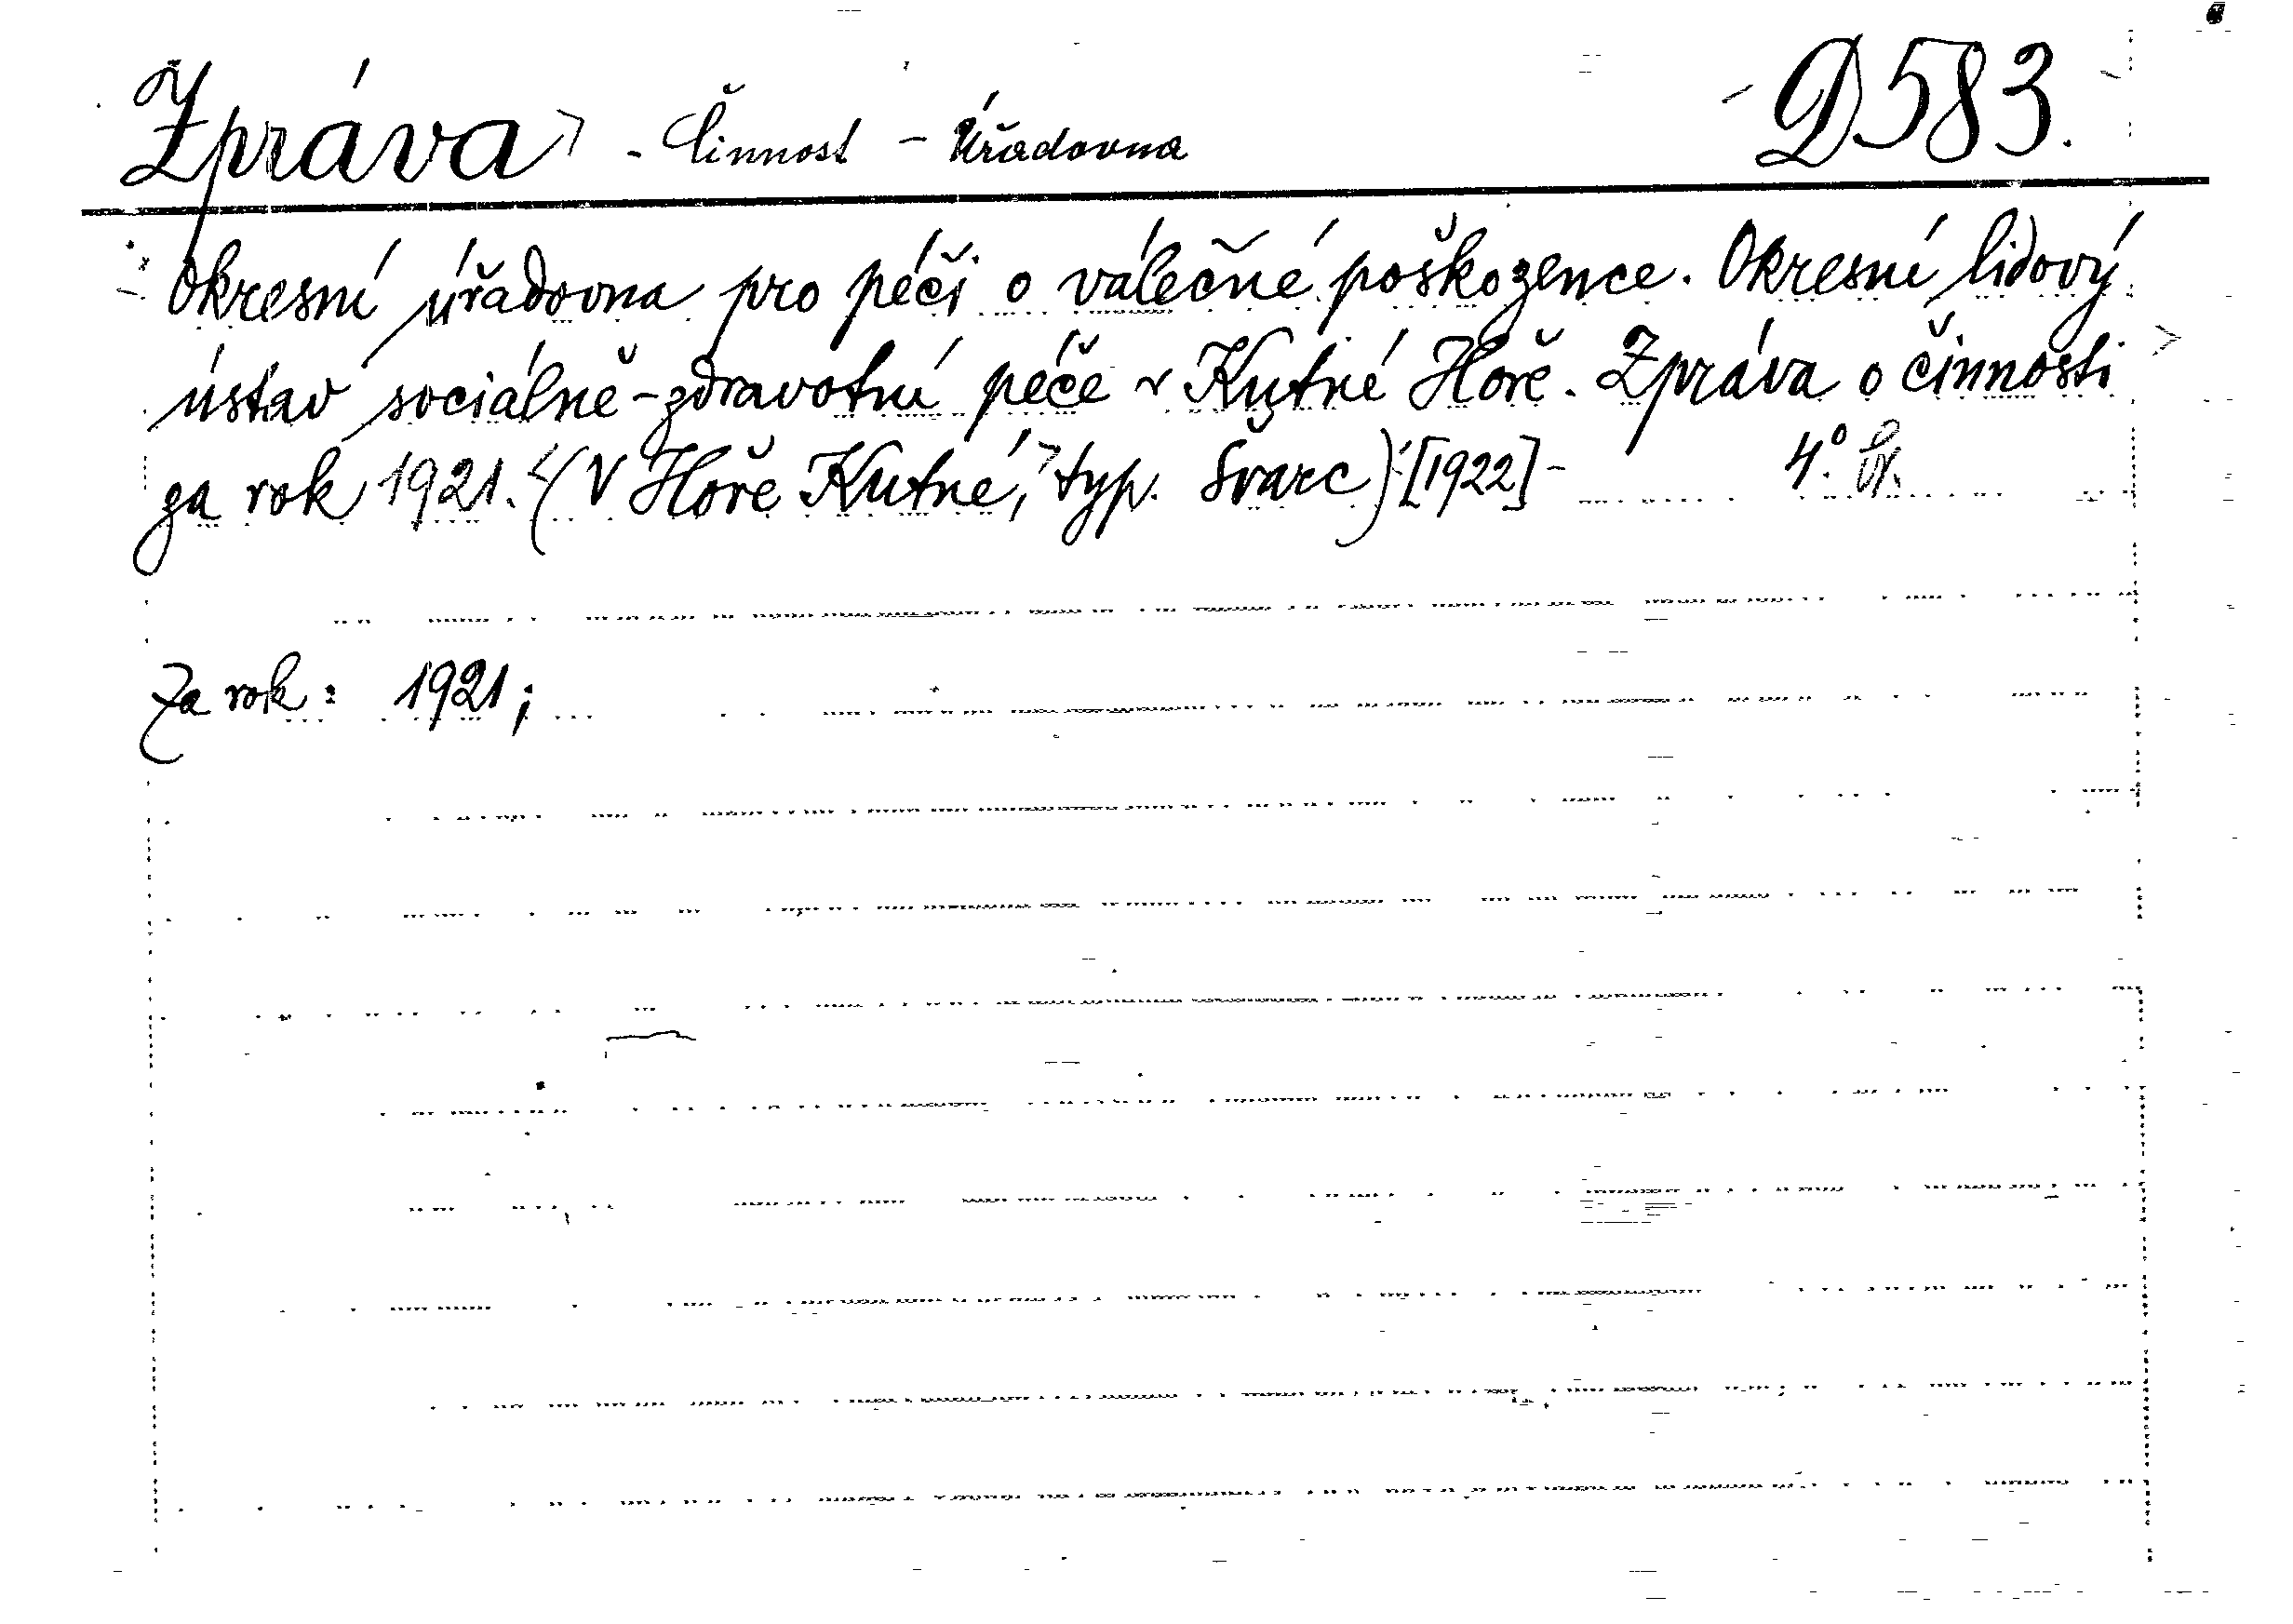 Zpráva - Činnost - Úřadovna D 583.
Okresní úřadovna pro péči o válečné poškozence. Okresní lidový
ústav sociálně-zdravotní péče v Kutné Hoře. Zpráva o činnosti
za rok 1921. (V Hoře Kutné, typ. Švarc) [1922] - 4°.
Za rok: 1921;